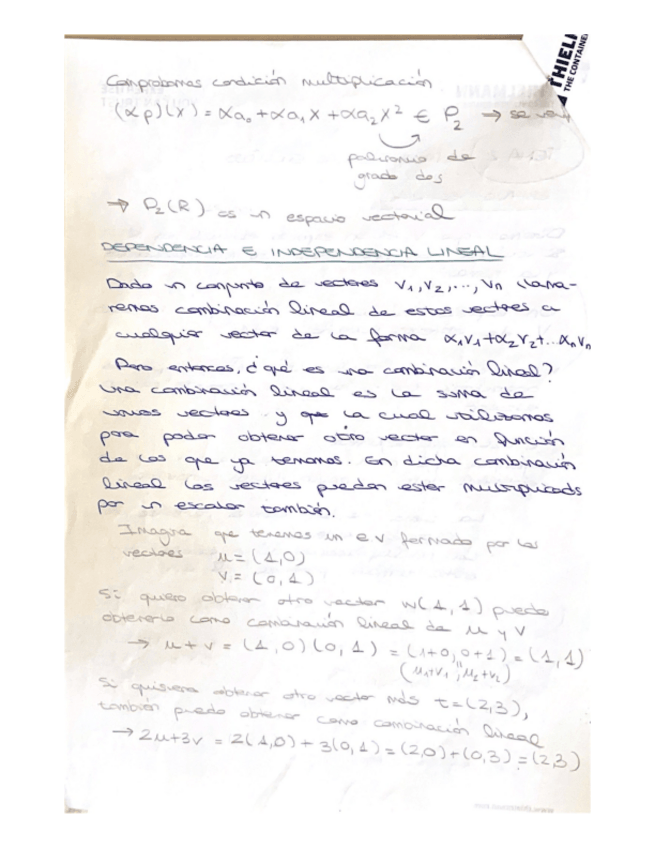 THIELM
THE CONTAINE
Comprobamos condición multiplicación
(αp)(x) = αa₀ + αa₁x + αa₂x² ∈ P₂ → se
polinomio de
grado dos
→ P₂(R) es un espacio vectorial
DEPENDENCIA E INDEPENDENCIA LINEAL
Dado un conjunto de vectores v₁, v₂, ..., vn llama-
remos combinación lineal de estos vectores a
cualquier vector de la forma α₁v₁+α₂v₂+...αnvn
Pero entonces, ¿qué es una combinación lineal?
Una combinación lineal es la suma de
unos vectores y la cual utilizamos
para poder obtener otro vector en función
de los que ya tenemos. En dicha combinación
lineal los vectores pueden estar multiplicados
por un escalar también.
Imagina que tenemos un eV formado por los
vectores u = (1,0)
v = (0,1)
Si quiero obtener otro vector w(1,1) puedo
obtenerlo como combinación lineal de u y v
→ u + v = (1,0)(0,1) = (1+0,0+1) = (1,1)
(u₁+v₁, u₂+v₂)
Si quisiera obtener otro vector más t=(2,3),
también puedo obtener como combinación lineal
→ 2u+3v = 2(1,0) + 3(0,1) = (2,0)+(0,3) = (2,3)